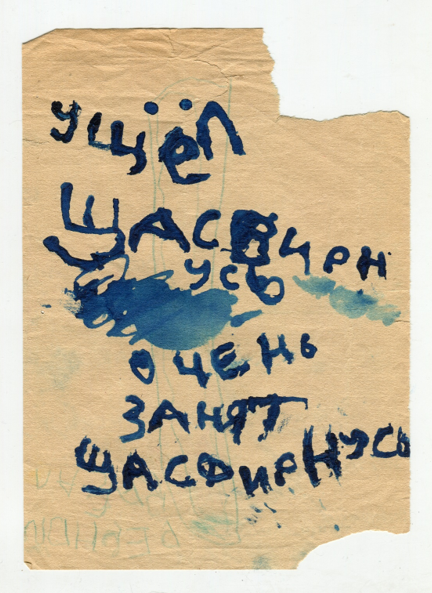 УЩЁЛ
ЩАСВИРН
УСЬ
ОЧЕНЬ
ЗАНЯТ
ЩАСВИРНУСЬ